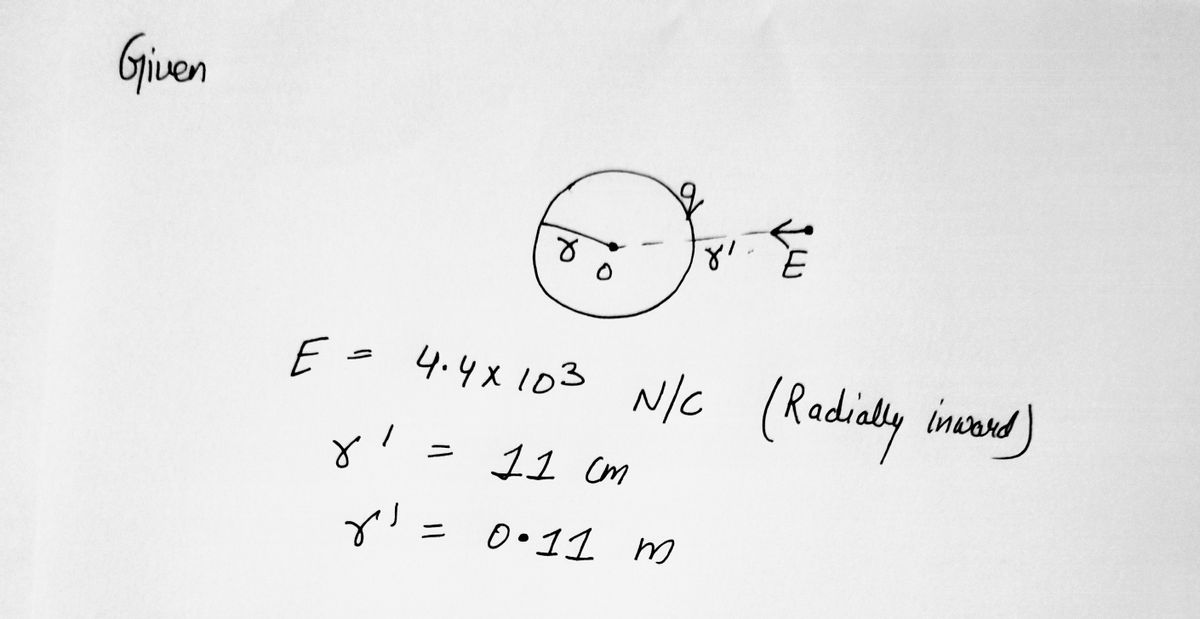 Given
q
r
o
r'
E
E = 4.4 x 10³ N/C (Radially inward)
r' = 11 cm
r' = 0.11 m